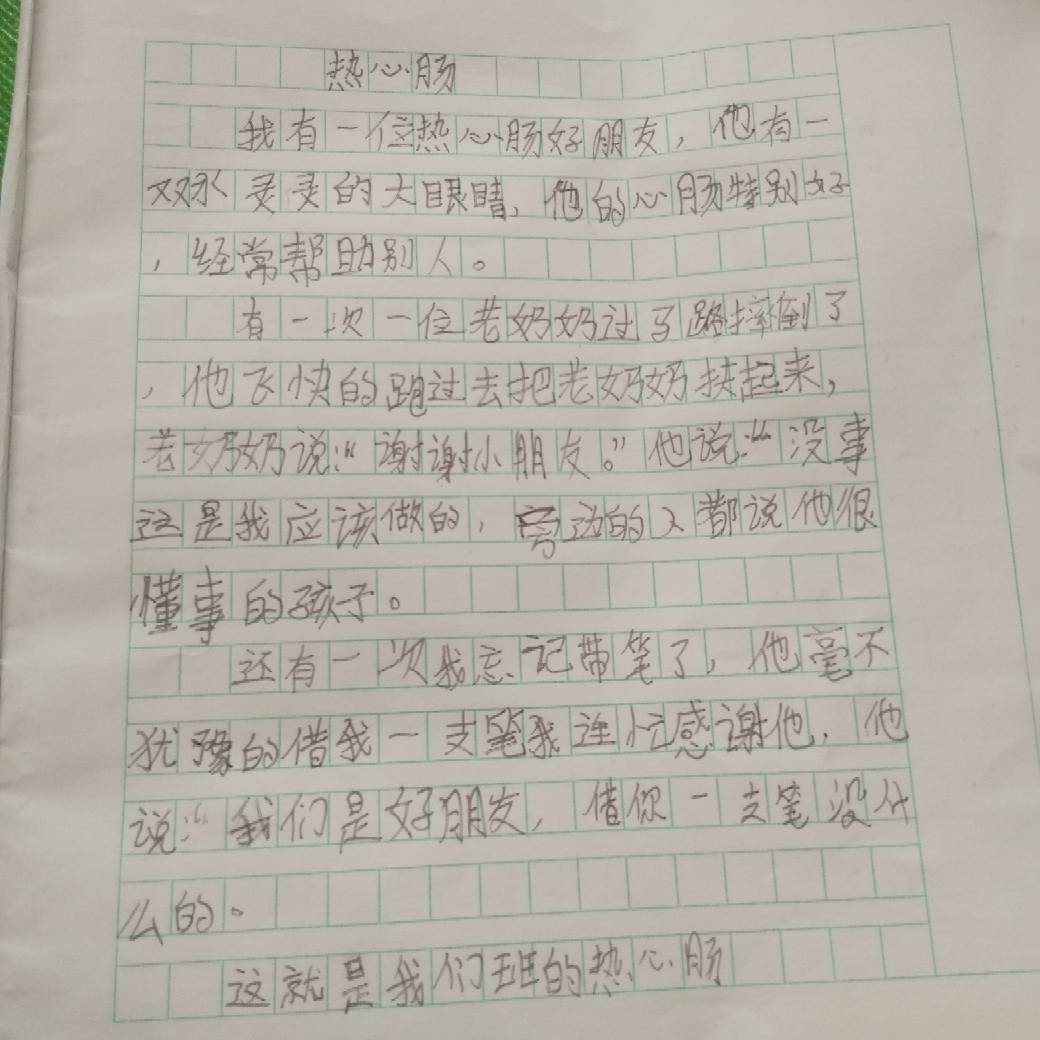 热心肠
我有一位热心肠好朋友，他有一
双水灵灵的大眼睛，他的心肠特别好
，经常帮助别人。
有一次一位老奶奶过马路摔倒了
，他飞快的跑过去把老奶奶扶起来，
老奶奶说：“谢谢小朋友。”他说：“没事
这是我应该做的，旁边的人都说他很
懂事的孩子。
还有一次我忘记带笔了，他毫不
犹豫的借我一支笔我连忙感谢他，他
说：“我们是好朋友，借你一支笔没什
么的。
这就是我们班的热心肠